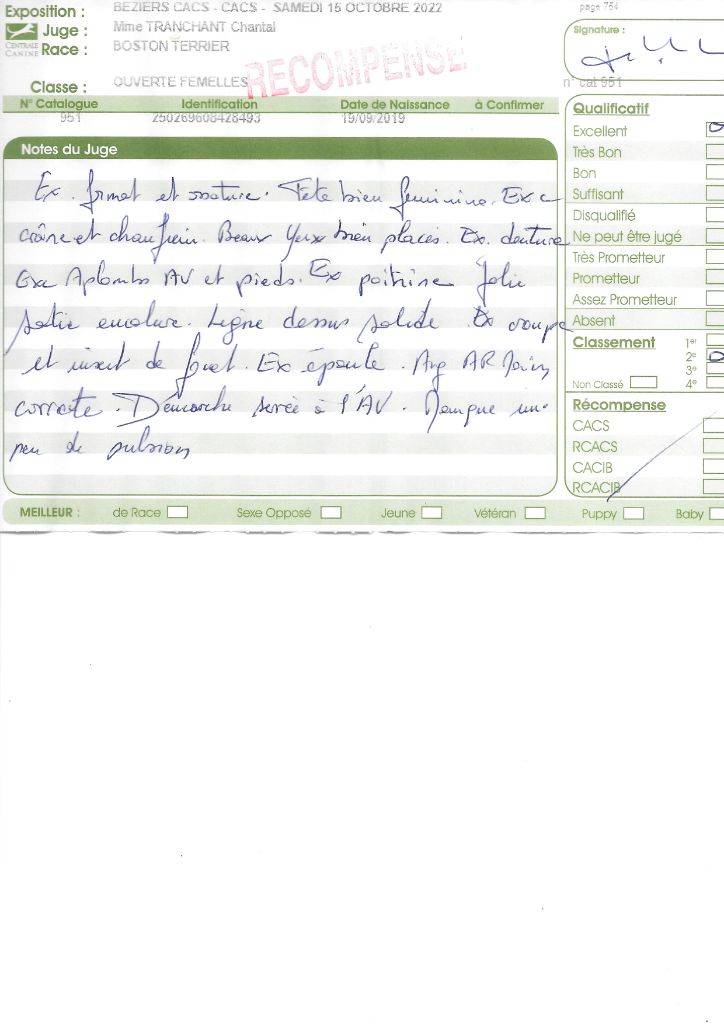 Exposition : BEZIERS CACS - CACS - SAMEDI 15 OCTOBRE 2022
page 754
Juge : Mme TRANCHANT Chantal
CENTRALE CANINE
Race : BOSTON TERRIER
RECOMPENSE
Signature :
Classe : OUVERTE FEMELLES
n° cat 951
N° Catalogue Identification Date de Naissance à Confirmer
951 250269608428493 19/09/2019
Notes du Juge
Ex. format et ossature. Tête bien feminine. Ex
crâne et chanfrein. Beaux yeux bien placés. Ex. denture
Exc Aplombs AV et pieds. Ex poitrine Jolie
sortie encolure. Ligne dessus solide. Ex croupe
et insert de fouet. Ex épaule. Ang AR
correcte. Démarche serrée à l'AV. Manque un
peu de pulsion
Qualificatif
Excellent
Très Bon
Bon
Suffisant
Disqualifié
Ne peut être jugé
Très Prometteur
Prometteur
Assez Prometteur
Absent
Classement 1er
2e
3e
Non Classé 4e
Récompense
CACS
RCACS
CACIB
RCACIB
MEILLEUR : de Race Sexe Opposé Jeune Vétéran Puppy Baby